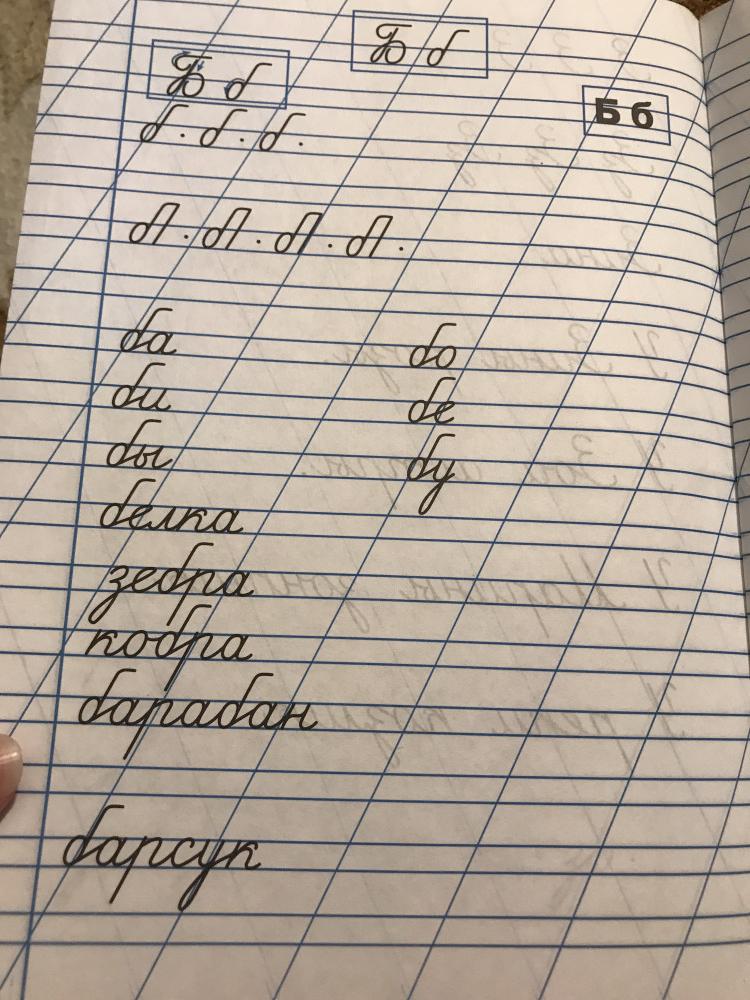 Б б
Б б
Б б
б . б . б .
бп . бп . бп . бп .
ба бо
би бе
бы бу
белка
зебра
кобра
барабан
барсук